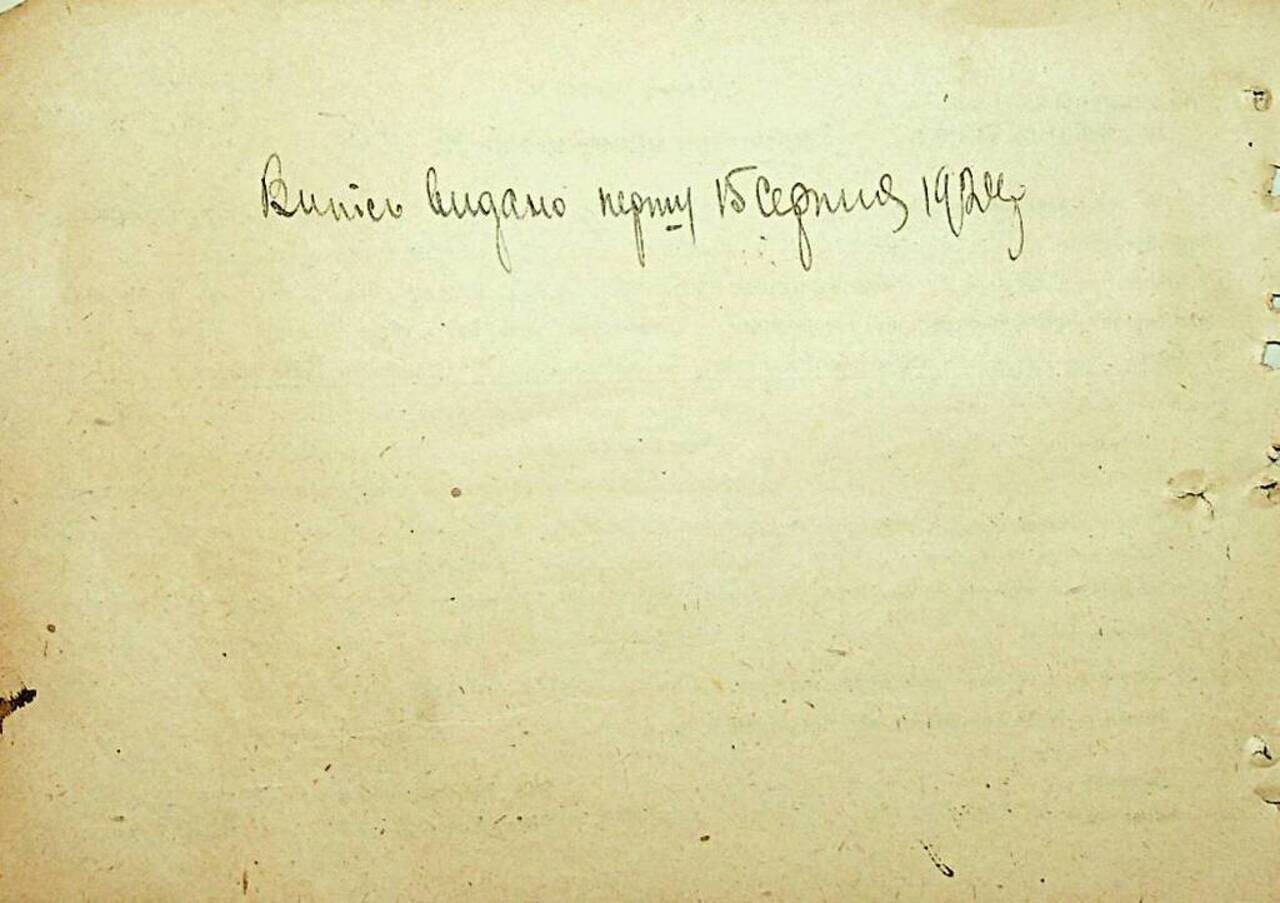 Випісь видано першу 15 серпня 192